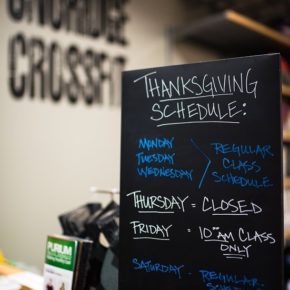 CROSSFIT
THANKSGIVING
SCHEDULE:
MONDAY
TUESDAY
WEDNESDAY
REGULAR
CLASS
SCHEDULE
THURSDAY = CLOSED
FRIDAY = 10:00AM CLASS
ONLY
SATURDAY - REGULAR
PURIUM